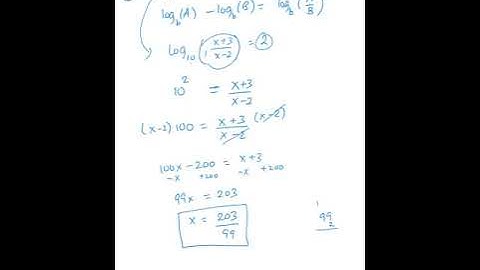 log_b(A) - log_b(B) = log_b(A/B)
log_10 (x+3)/(x-2) = 2
10^2 = (x+3)/(x-2)
(x-2) 100 = (x+3)/(x-2) (x-2)
100x - 200 = x+3
-x +200 -x +200
99x = 203
x = 203/99
1
99
2